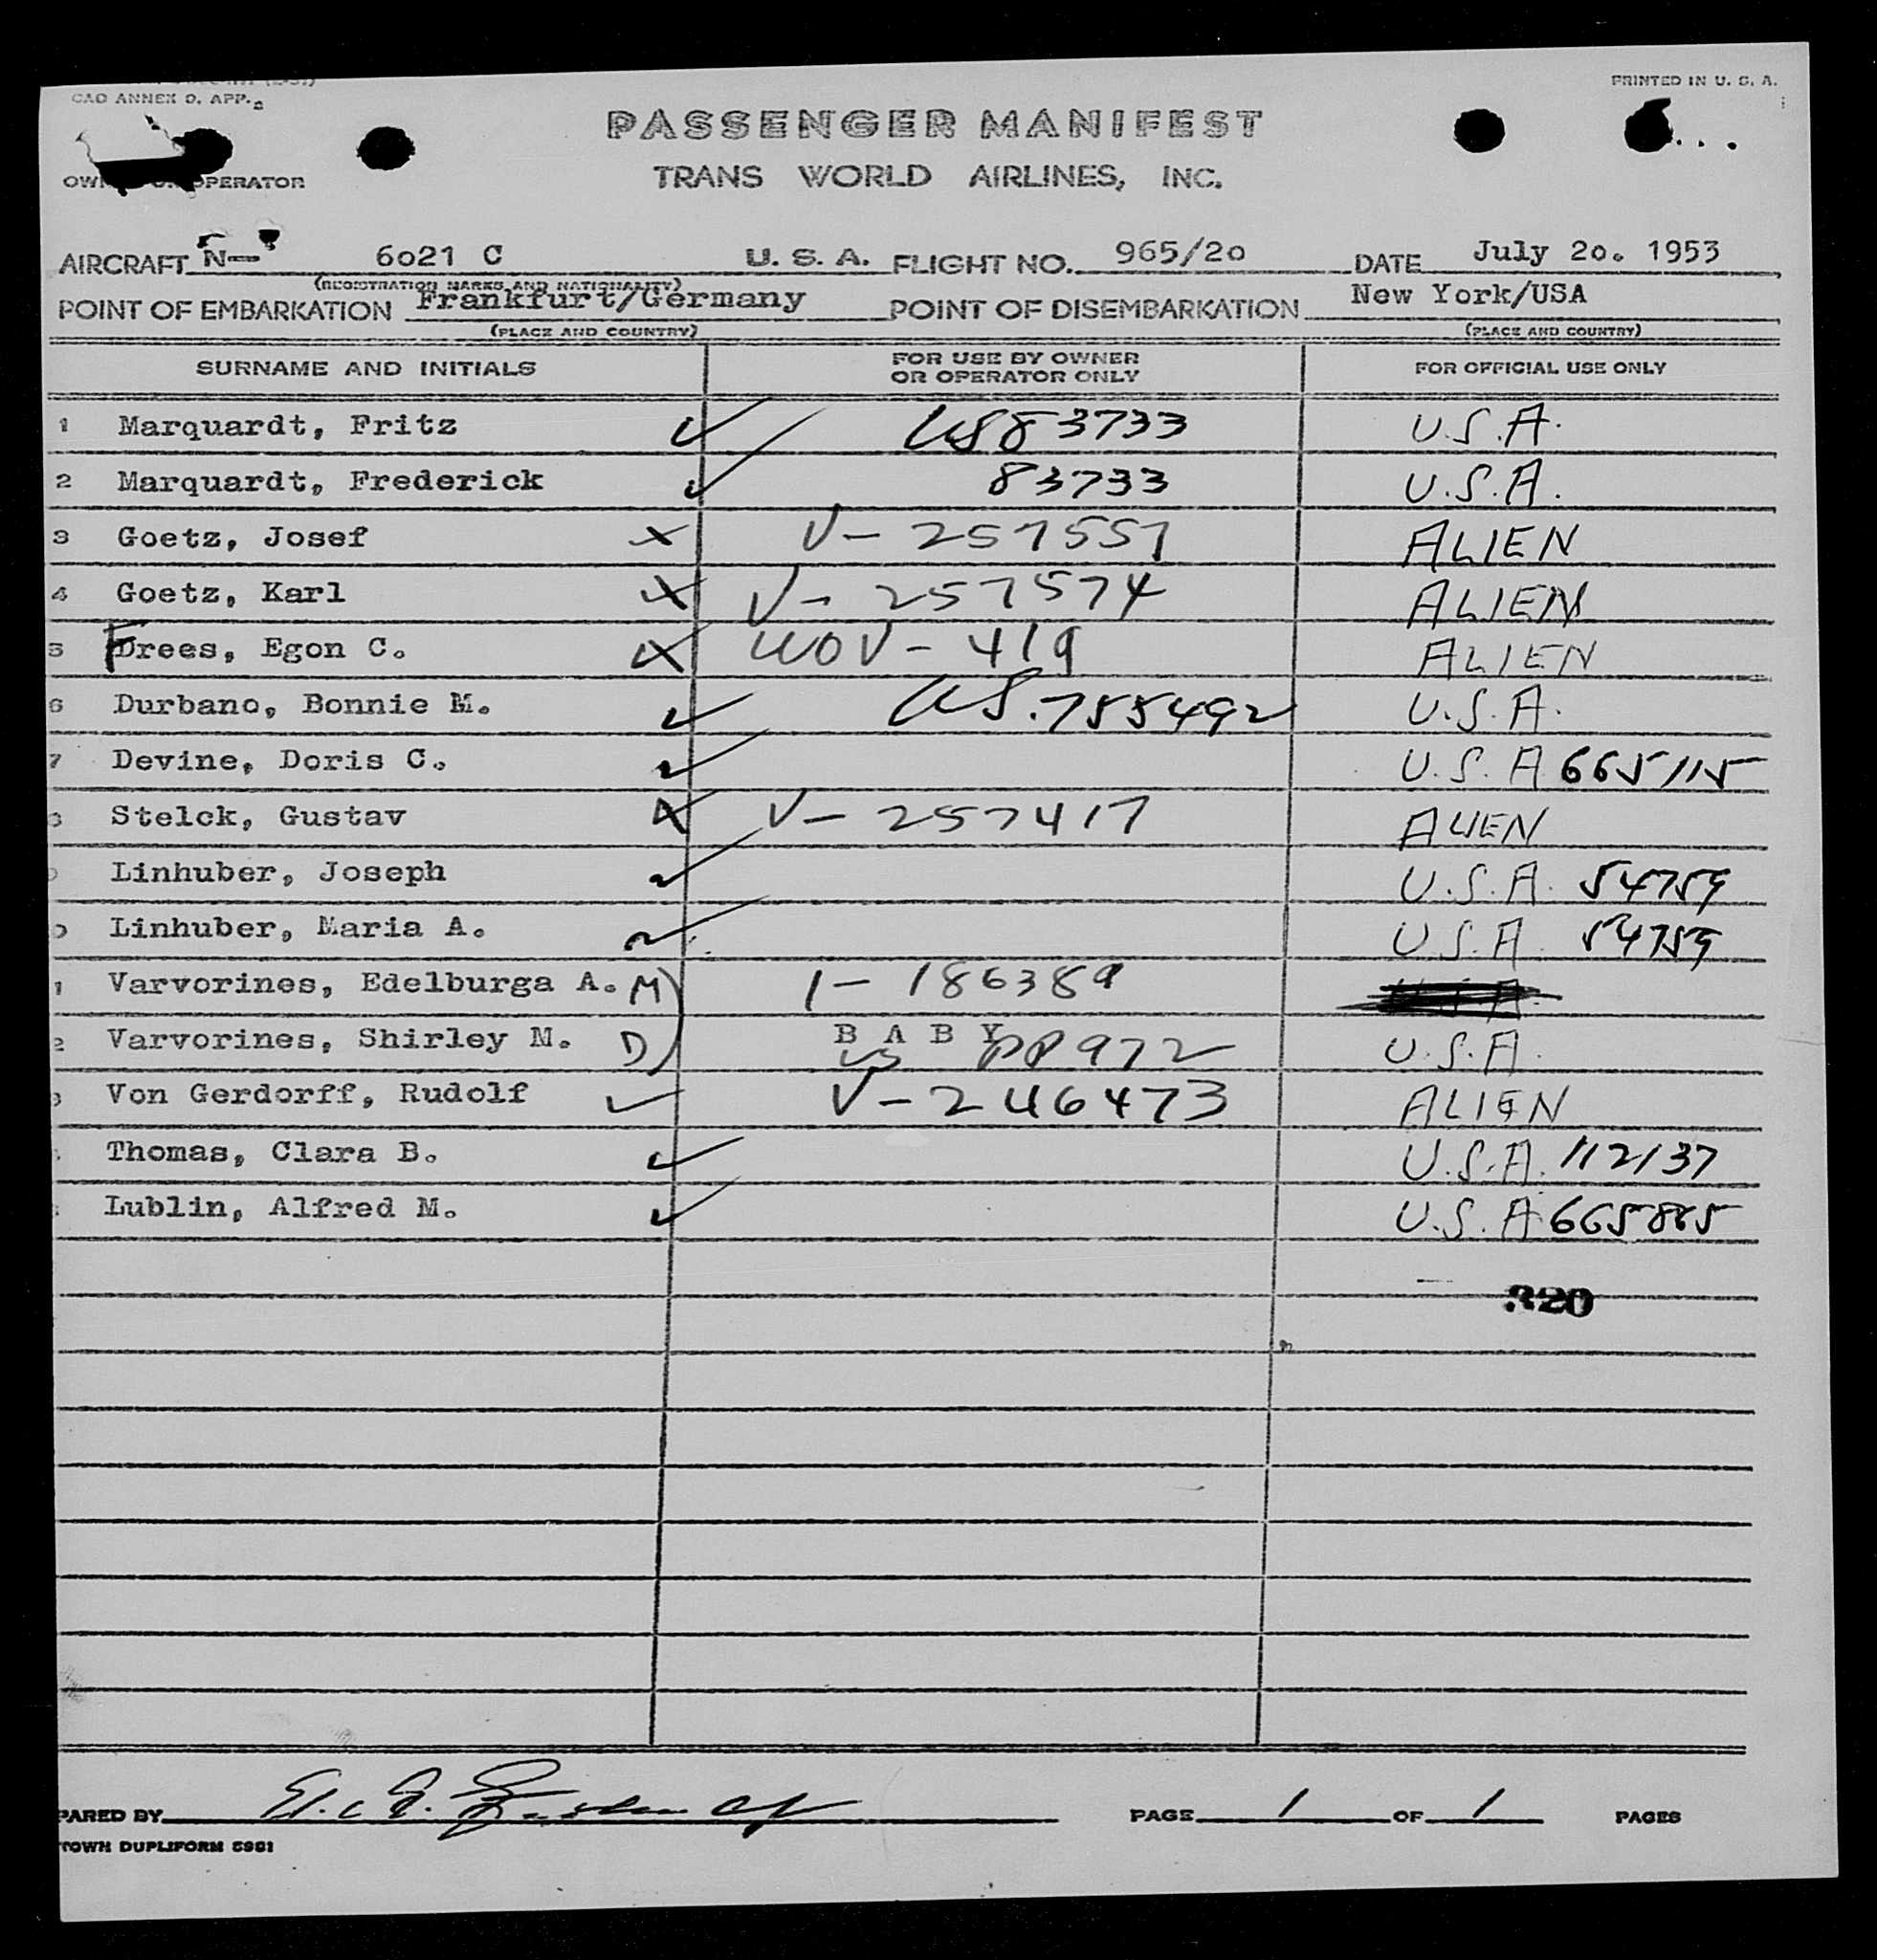 CAO ANNEX 9, APP. 2
PRINTED IN U. S. A.
PASSENGER MANIFEST
OPERATOR
TRANS WORLD AIRLINES, INC.
AIRCRAFT N- 6021 C U. S. A. FLIGHT NO. 965/20 DATE July 20. 1953
(REGISTRATION MARKS AND NATIONALITY)
POINT OF EMBARKATION Frankfurt/Germany POINT OF DISEMBARKATION New York/USA
(PLACE AND COUNTRY) (PLACE AND COUNTRY)
SURNAME AND INITIALS FOR USE BY OWNER OR OPERATOR ONLY FOR OFFICIAL USE ONLY
1 Marquardt, Fritz ✓ US83733 U.S.A.
2 Marquardt, Frederick ✓ 83733 U.S.A.
3 Goetz, Josef X V-257557 ALIEN
4 Goetz, Karl X V-257574 ALIEN
5 Frees, Egon C. X WOV-419 ALIEN
6 Durbano, Bonnie M. ✓ US.755492 U.S.A.
7 Devine, Doris C. ✓ U.S.A 665115
Stelck, Gustav X V-257417 ALIEN
Linhuber, Joseph ✓ U.S.A. 54759
Linhuber, Maria A. ✓ U.S.A. 54759
1 Varvorines, Edelburga A. M 1-186389
2 Varvorines, Shirley M. D BABY US PP972 U.S.A.
Von Gerdorff, Rudolf ✓ V-246473 ALIEN
Thomas, Clara B. ✓ U.S.A. 112137
Lublin, Alfred M. ✓ U.S.A 665865
320
PARED BY PAGE 1 OF 1 PAGES
TOWN DUPLIFORM 5981